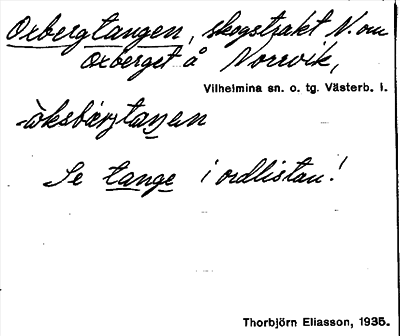 Oxbergtangen, skogstrakt N. om
Oxberget å Norrvik,
Vilhelmina sn. o. tg. Västerb. l.
Se tange i ordlistan!
Thorbjörn Eliasson, 1935.